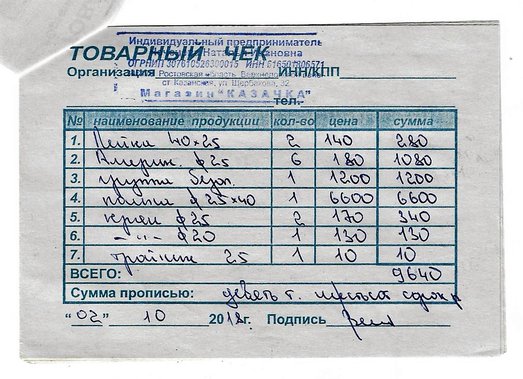 Индивидуальный предприниматель
ТОВАРНЫЙ ЧЕК
ОГРНИП 307610526300015 ИНН 616501806571
Организация Ростовская область, ИНН/КПП
ст. Казанская, ул. Щербакова, 32
Магазин "КАЗАЧКА"
тел.
№ наименование продукции кол-во цена сумма
1. Лейка 40×25 2 140 280
2. Америк. ф25 6 180 1080
3. группа безоп. 1 1200 1200
4. ф25×40 1 6600 6600
5. кран ф25 2 170 340
6. -"- ф20 1 130 130
7. тройник 25 1 10 10
ВСЕГО: 9640
Сумма прописью: девять т. шестьсот сорок р
"02" 10 2018г. Подпись